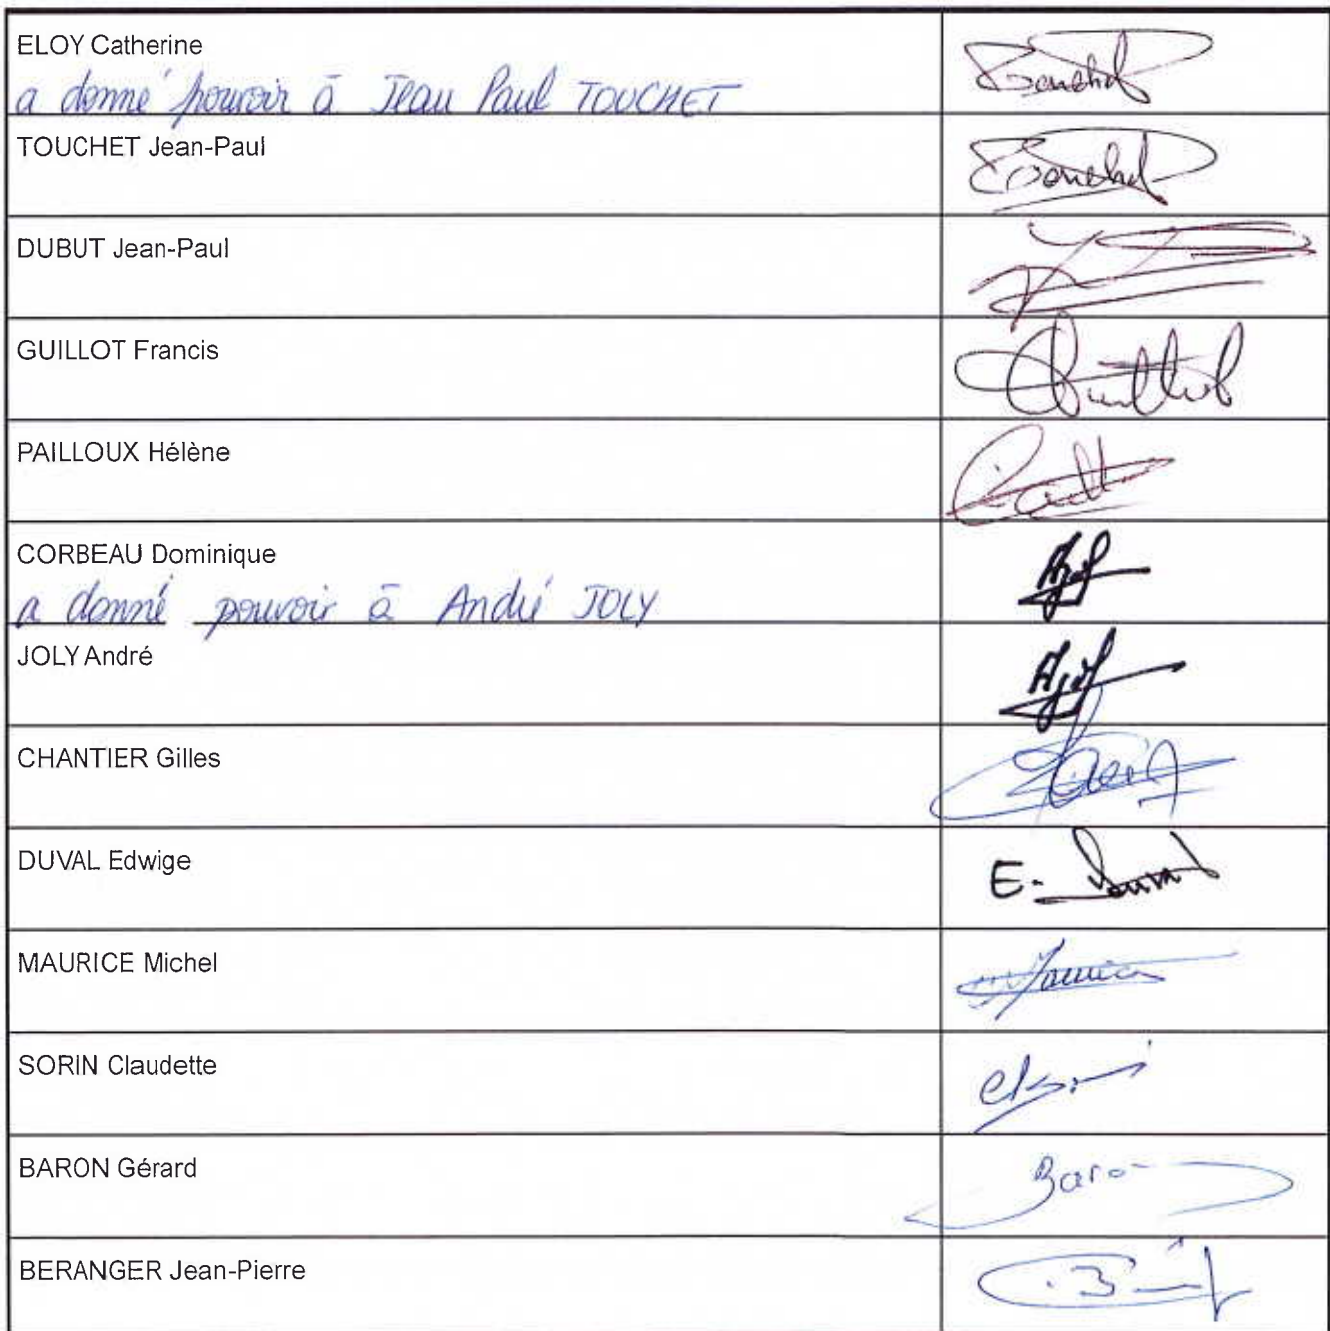 ELOY Catherine
a donné pouvoir à Jean Paul TOUCHET
TOUCHET Jean-Paul
DUBUT Jean-Paul
GUILLOT Francis
PAILLOUX Hélène
CORBEAU Dominique
a donné pouvoir à André JOLY
JOLY André
CHANTIER Gilles
DUVAL Edwige
E. Duval
MAURICE Michel
SORIN Claudette
BARON Gérard
Baron
BERANGER Jean-Pierre